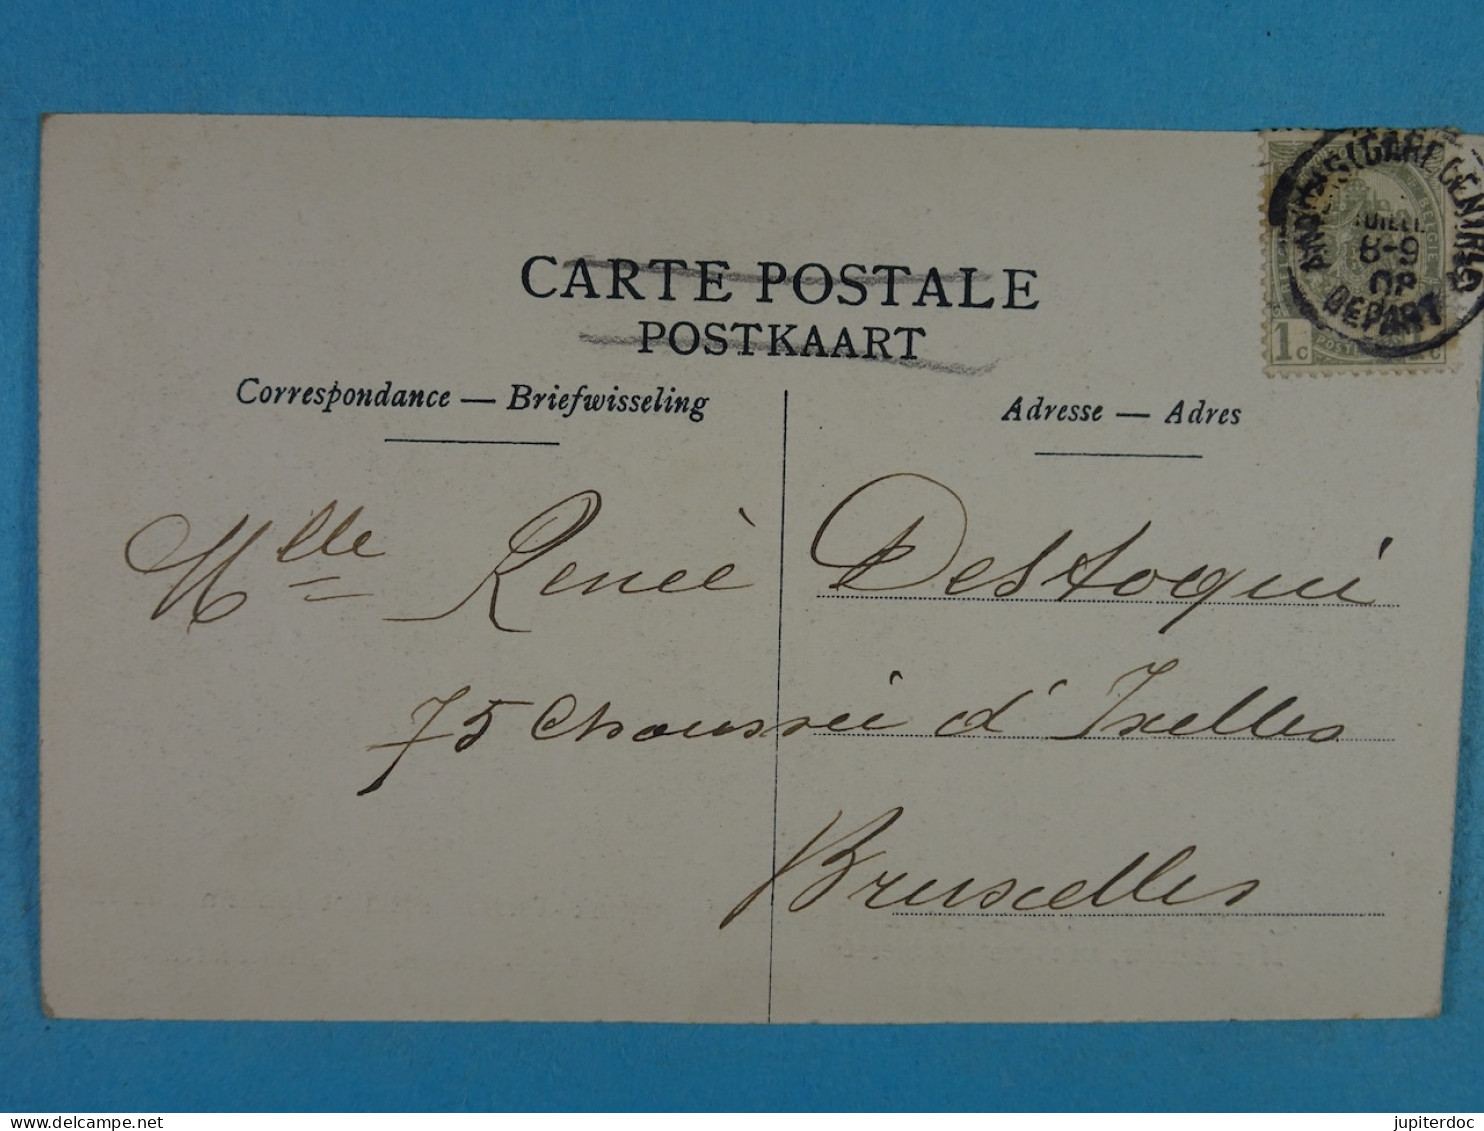 CARTE POSTALE
POSTKAART
Correspondance — Briefwisseling
Adresse — Adres
(GARE CENTRALE)
JUILL
8-9
08
DEPART
BELGIE
1c
Mlle Renée Destoqui
75 Chaussée d'Ixelles
Bruxelles
delcampe.net
jupiterdoc